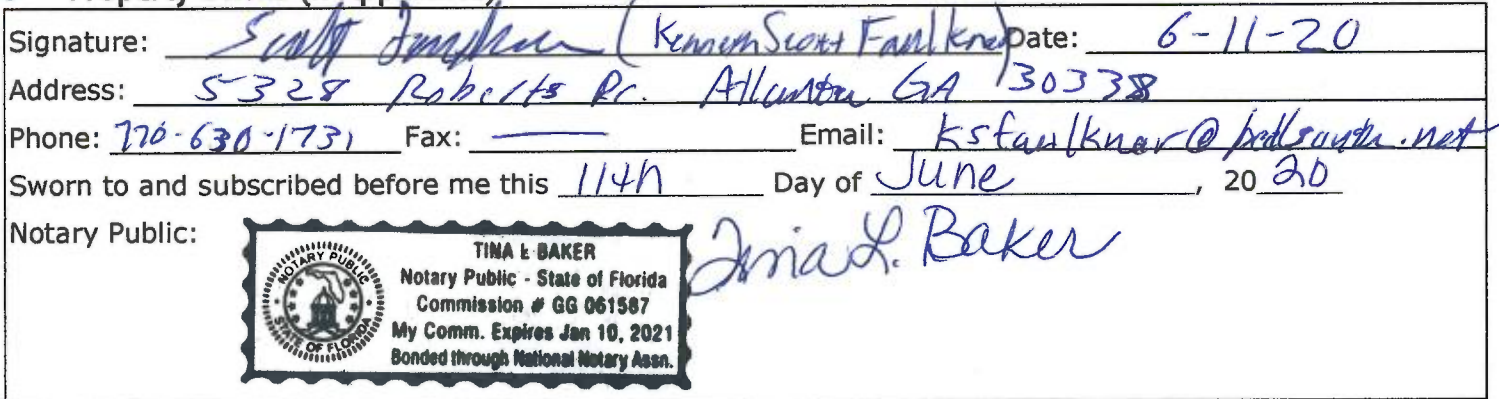 Signature: Scott Faulkner (Kenneth Scott Faulkner) Date: 6-11-20
Address: 5328 Roberts Dr. Atlanta GA 30338
Phone: 770-630-1731 Fax: — Email: ksfaulkner@bellsouth.net
Sworn to and subscribed before me this 11th Day of June, 20 20
Notary Public: Tina L. Baker
NOTARY PUBLIC
STATE OF FLORIDA
TINA L BAKER
Notary Public - State of Florida
Commission # GG 061587
My Comm. Expires Jan 10, 2021
Bonded through National Notary Assn.